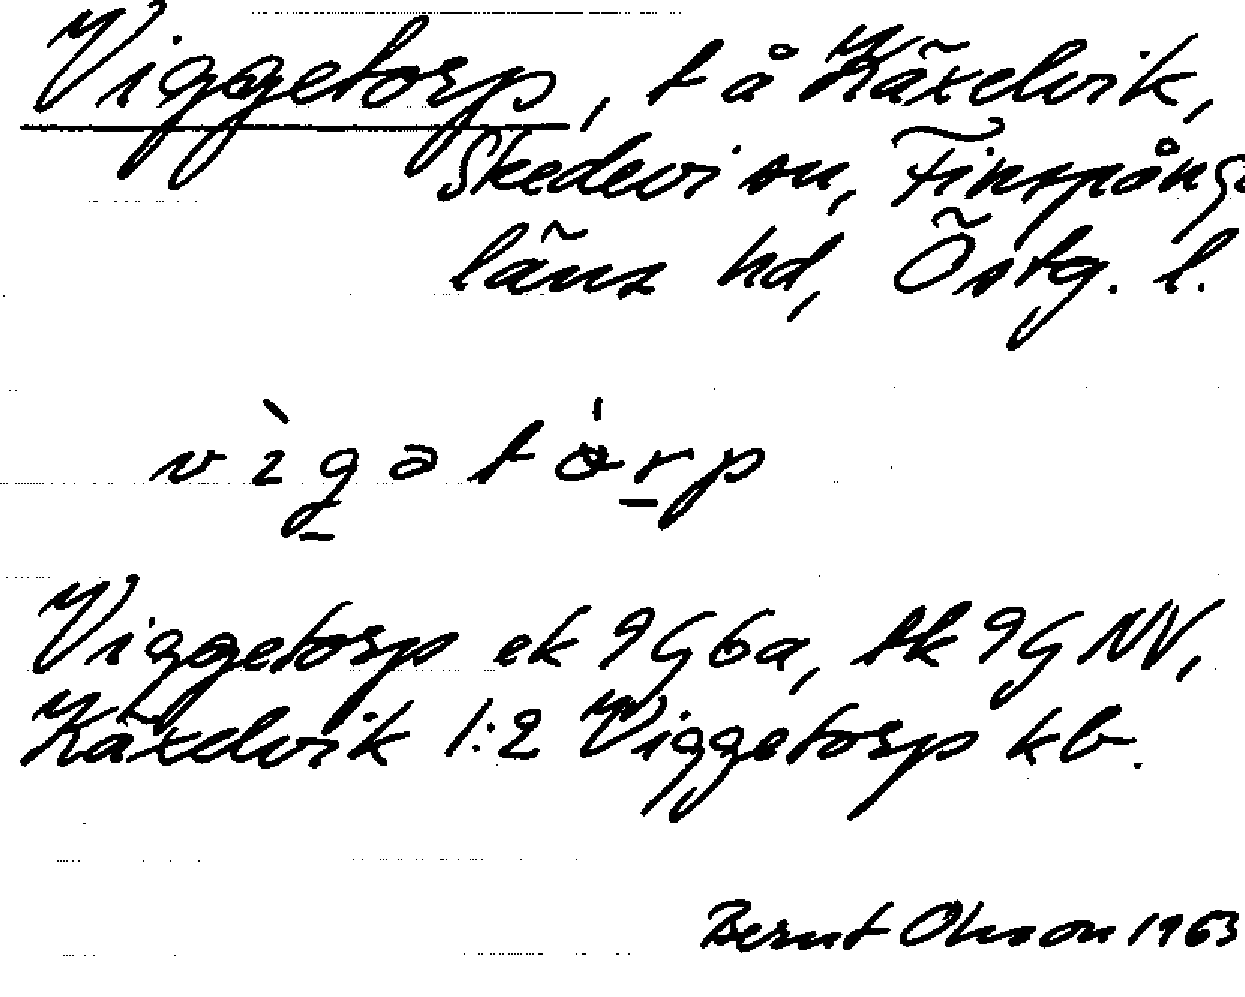 Viggetorp, t å Käxelvik,
Skedevi sn, Finspånga
läns hd, Östg. l.
vìgatórp
Viggetorp ek 9G6a, tk 9G NV,
Käxelvik 1:2 Viggetorp kb.
Bernt Olsson 1963